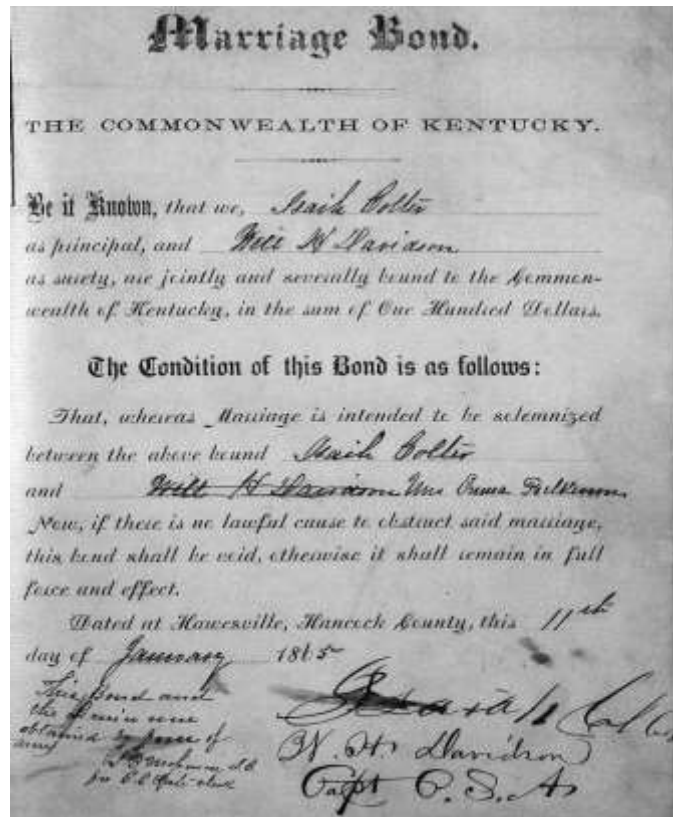 Marriage Bond.
THE COMMONWEALTH OF KENTUCKY.
Be it Known, that we, Isaih Colter
as principal, and Will H Davidson
as surety, are jointly and severally bound to the Common-
wealth of Kentucky, in the sum of One Hundred Dollars.
The Condition of this Bond is as follows:
That, whereas Marriage is intended to be solemnized
between the above bound Isaih Colter
and Will H Davidson
Now, if there is no lawful cause to obstruct said marriage,
this bond shall be void, otherwise it shall remain in full
force and effect.
Dated at Hawesville, Hancock County, this 11th
day of January 1865
This Bond and
the
obtained by force of
W. H. Davidson
Capt C. S. A